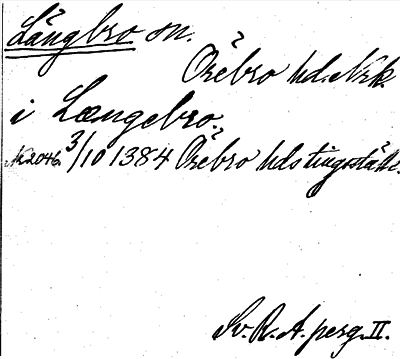 Långbro sn.
Örebro hd. Nrk.
i Længebro.
N2046 3/10 1384 Örebro hds tingställe.
Sv. R. A. perg. II.